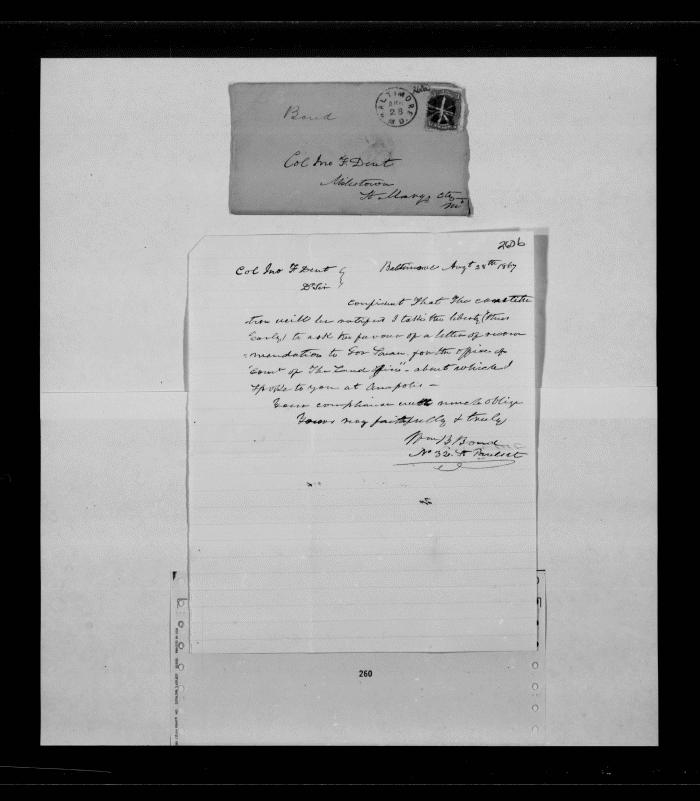 Bond
BALTIMORE
AUG
28
MD.
Col Jno F. Dent
Milestown
St Marys Cty
Md
260b
Col Jno F Dent
Baltimore Augt 28th 1867
Dr Sir
Confident that the constitu
tion will be ratified I take the liberty (thus
Early) to ask the favour of a letter of recom
-mendation to Gov Swan for the office of
"Comr of the Land Office" - about which I
Spoke to you at Anapolis -
Your compliance will much oblige
Yours very faithfully & truly
Wm B Bond
No 32 St Paul St
260